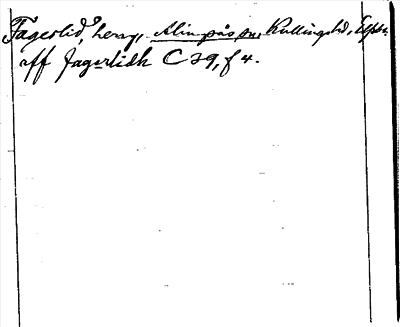 Fagerlid, herrg, Alingsås sn, Kullings hd, Elfsb.
aff Fagerlidh C 29, f 4.